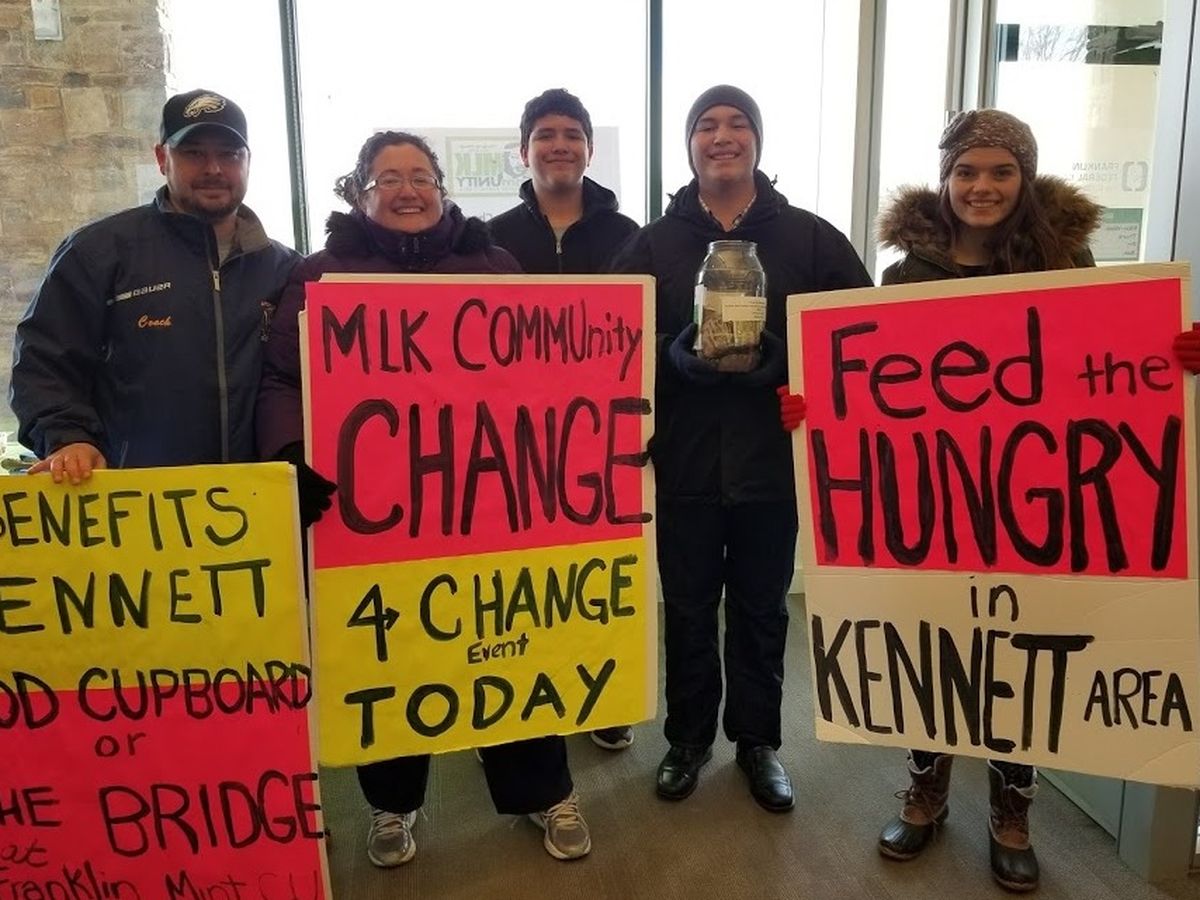 MLK
UNITY
FRANKLIN
FEDERAL
BAUER
Coach
BENEFITS
KENNETT
CUPBOARD
or
THE BRIDGE
at
Franklin Mint CU
MLK COMMUnity
CHANGE
4→ CHANGE
Event
TODAY
Feed the
HUNGRY
in
KENNETT AREA